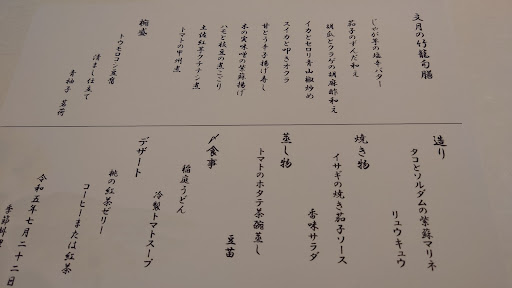 文月の竹籠旬膳
じゃが芋の塩辛バター
茄子のずんだ和え
胡瓜とクラゲの胡麻酢和え
イカとセロリ青山椒炒め
スイカと叩きオクラ
甘とう辛子揚げ寿し
木の実味噌の紫蘇揚げ
ハモと枝豆の煮こごり
土諸紅茶クチナシ煮
トマトの甲州煮
椀盛
トウモロコシ豆腐
清まし仕立て
青柚子 茗荷
造り
タコとソルダムの紫蘇マリネ
リュウキュウ
焼き物
イサギの焼き茄子ソース
香味サラダ
蒸し物
トマトのホタテ茶碗蒸し
豆苗
〆食事
稲庭うどん
冷製トマトスープ
デザート
桃の紅茶ゼリー
コーヒーまたは紅茶
令和五年七月二十二日
季節料理